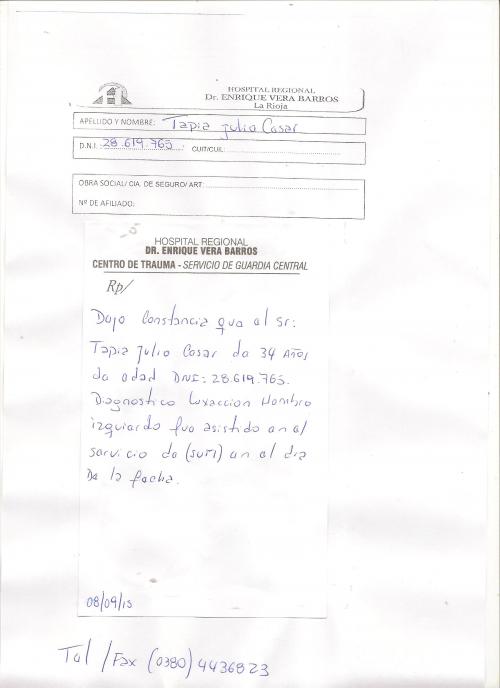 HOSPITAL REGIONAL
Dr. ENRIQUE VERA BARROS
La Rioja
APELLIDO Y NOMBRE: Tapia Julio Cesar
D.N.I. 28.619.765 CUIT/CUIL:
OBRA SOCIAL/ CIA. DE SEGURO/ ART
Nº DE AFILIADO:
HOSPITAL REGIONAL
DR. ENRIQUE VERA BARROS
CENTRO DE TRAUMA - SERVICIO DE GUARDIA CENTRAL
Rp/
Dejo Constancia que el Sr:
Tapia Julio Cesar de 34 Años
de edad DNI: 28.619.765.
Diagnostico Luxaccion Hombro
izquierdo fue asistido en el
servicio de (SUTI) en el dia
De la fecha.
08/09/15
Tel / Fax (0380) 4436823